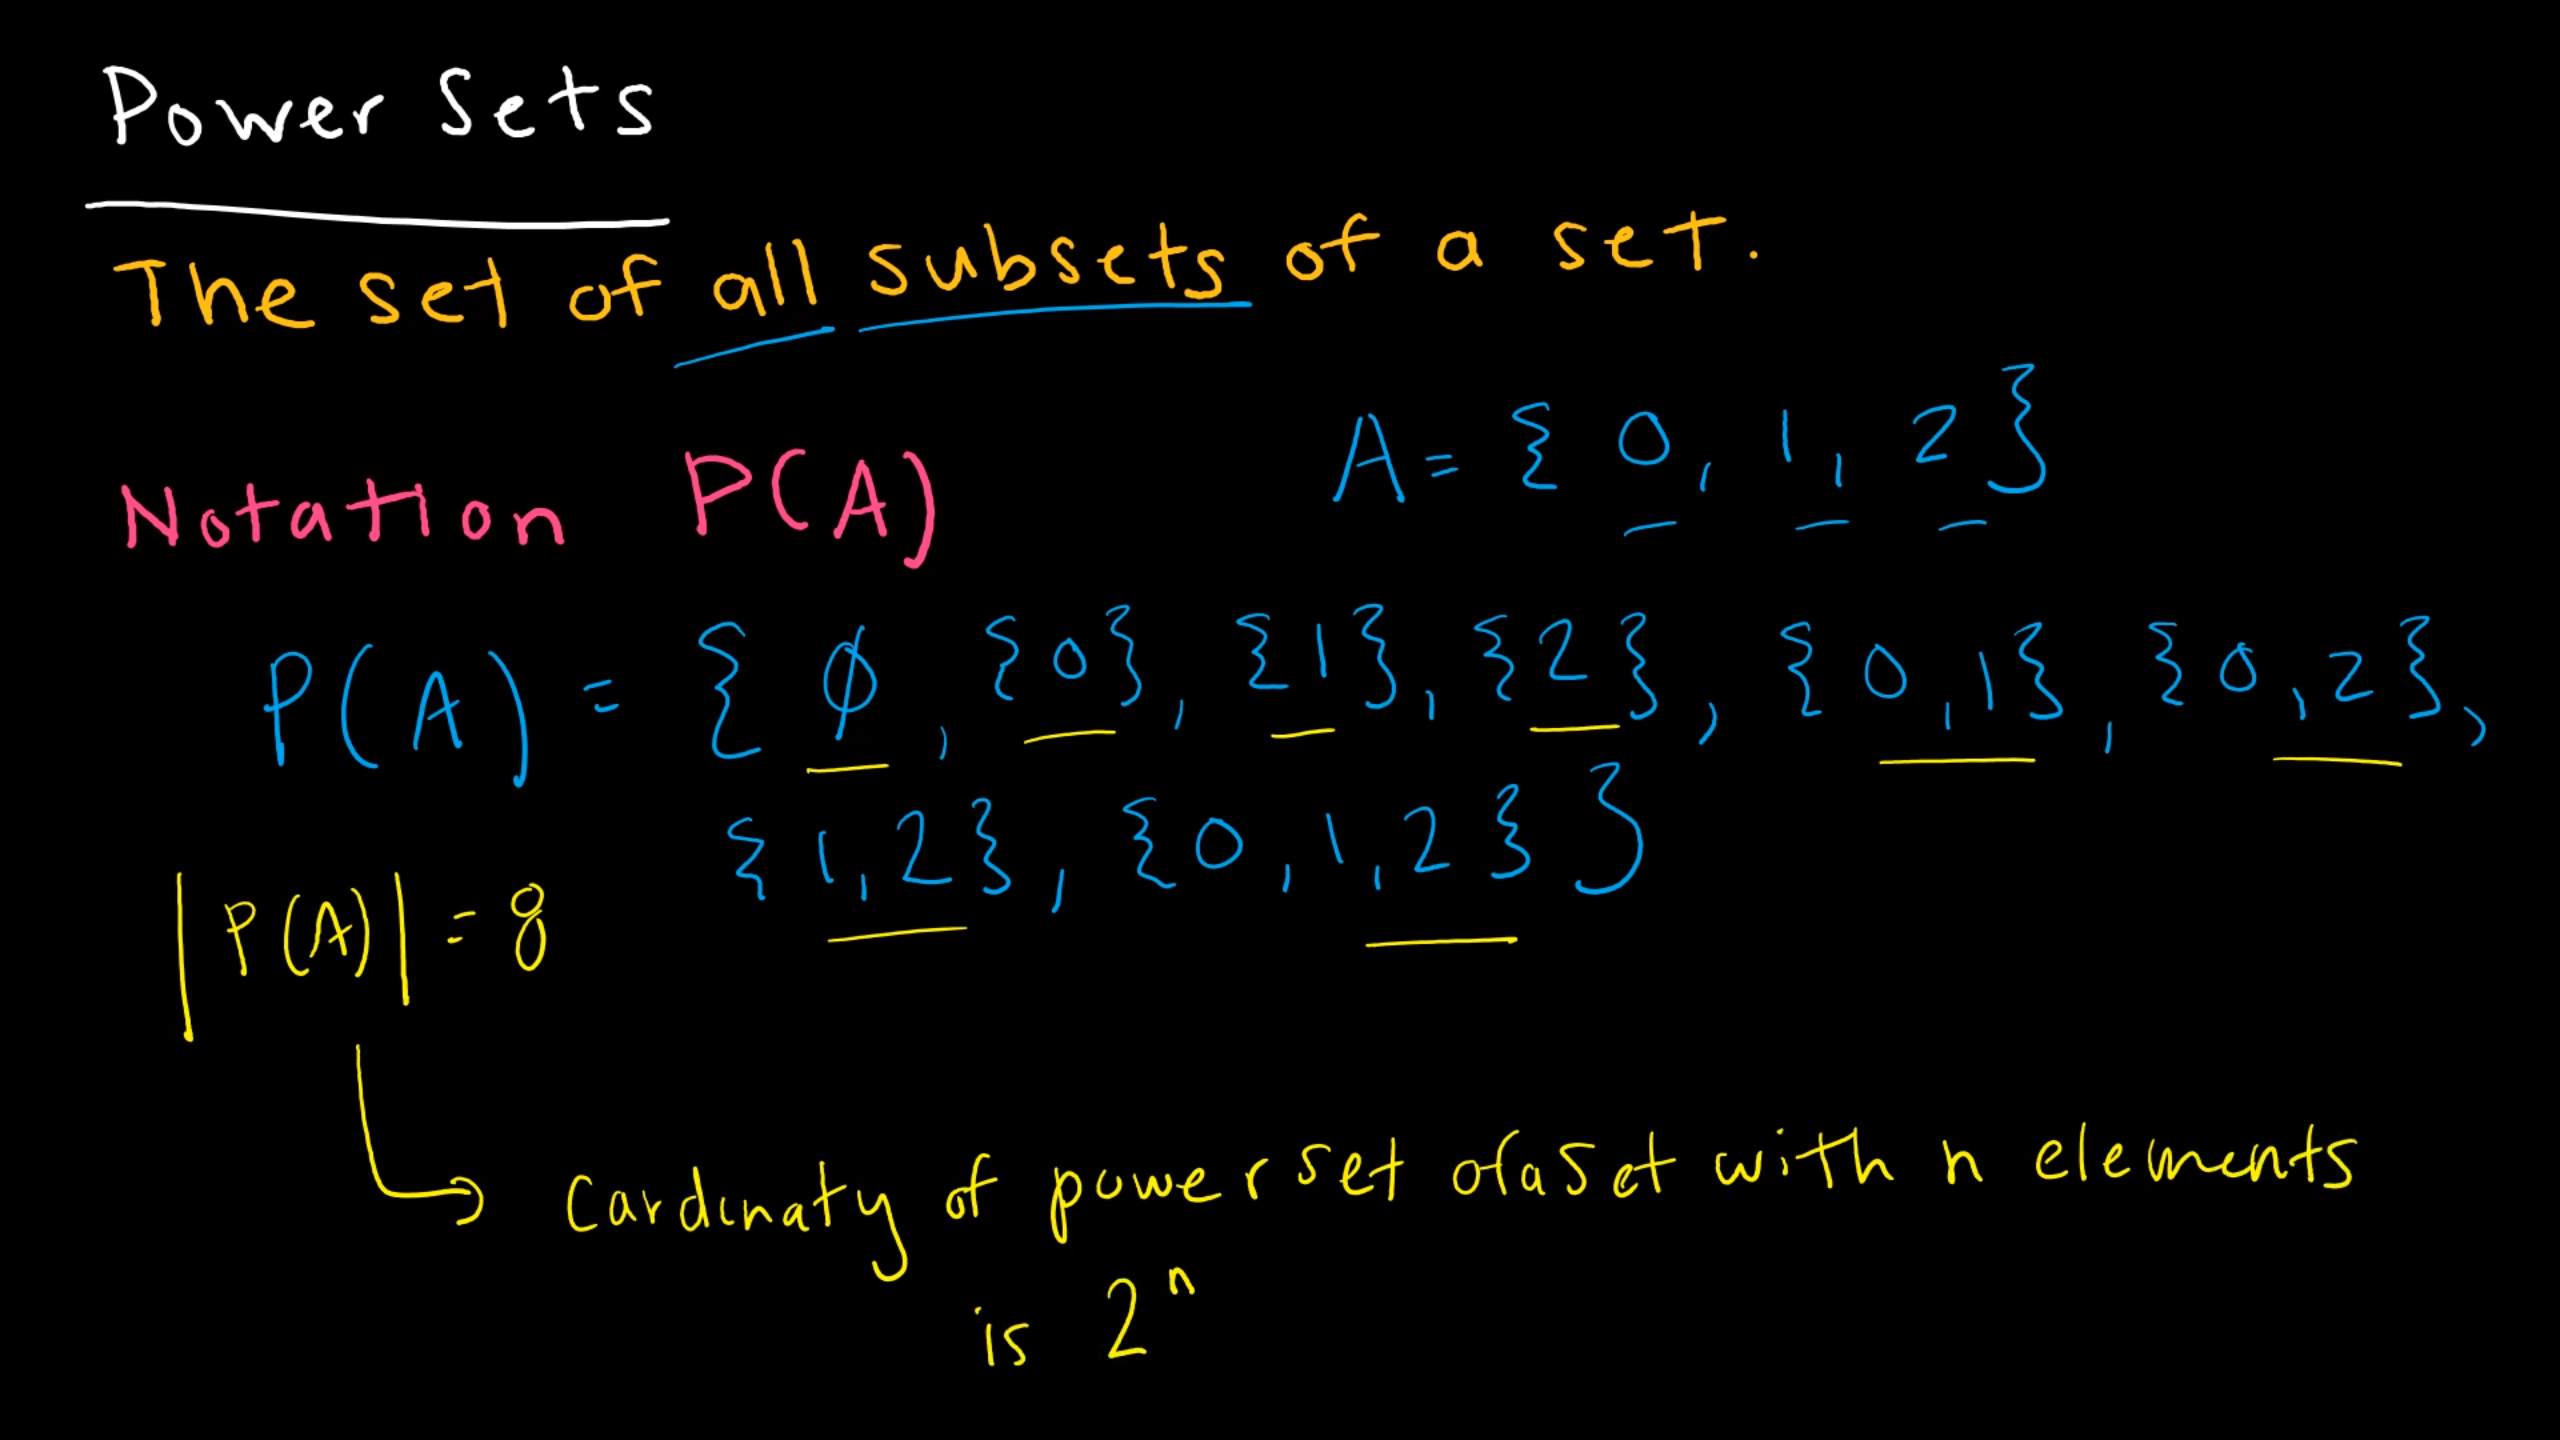 Power Sets
The set of all subsets of a set.
Notation P(A)
A = { 0, 1, 2 }
P(A) = { ∅, {0}, {1}, {2}, {0,1}, {0,2},
{1,2}, {0,1,2} }
|P(A)| = 8
Cardinaty of power set of a set with n elements
is 2ⁿ